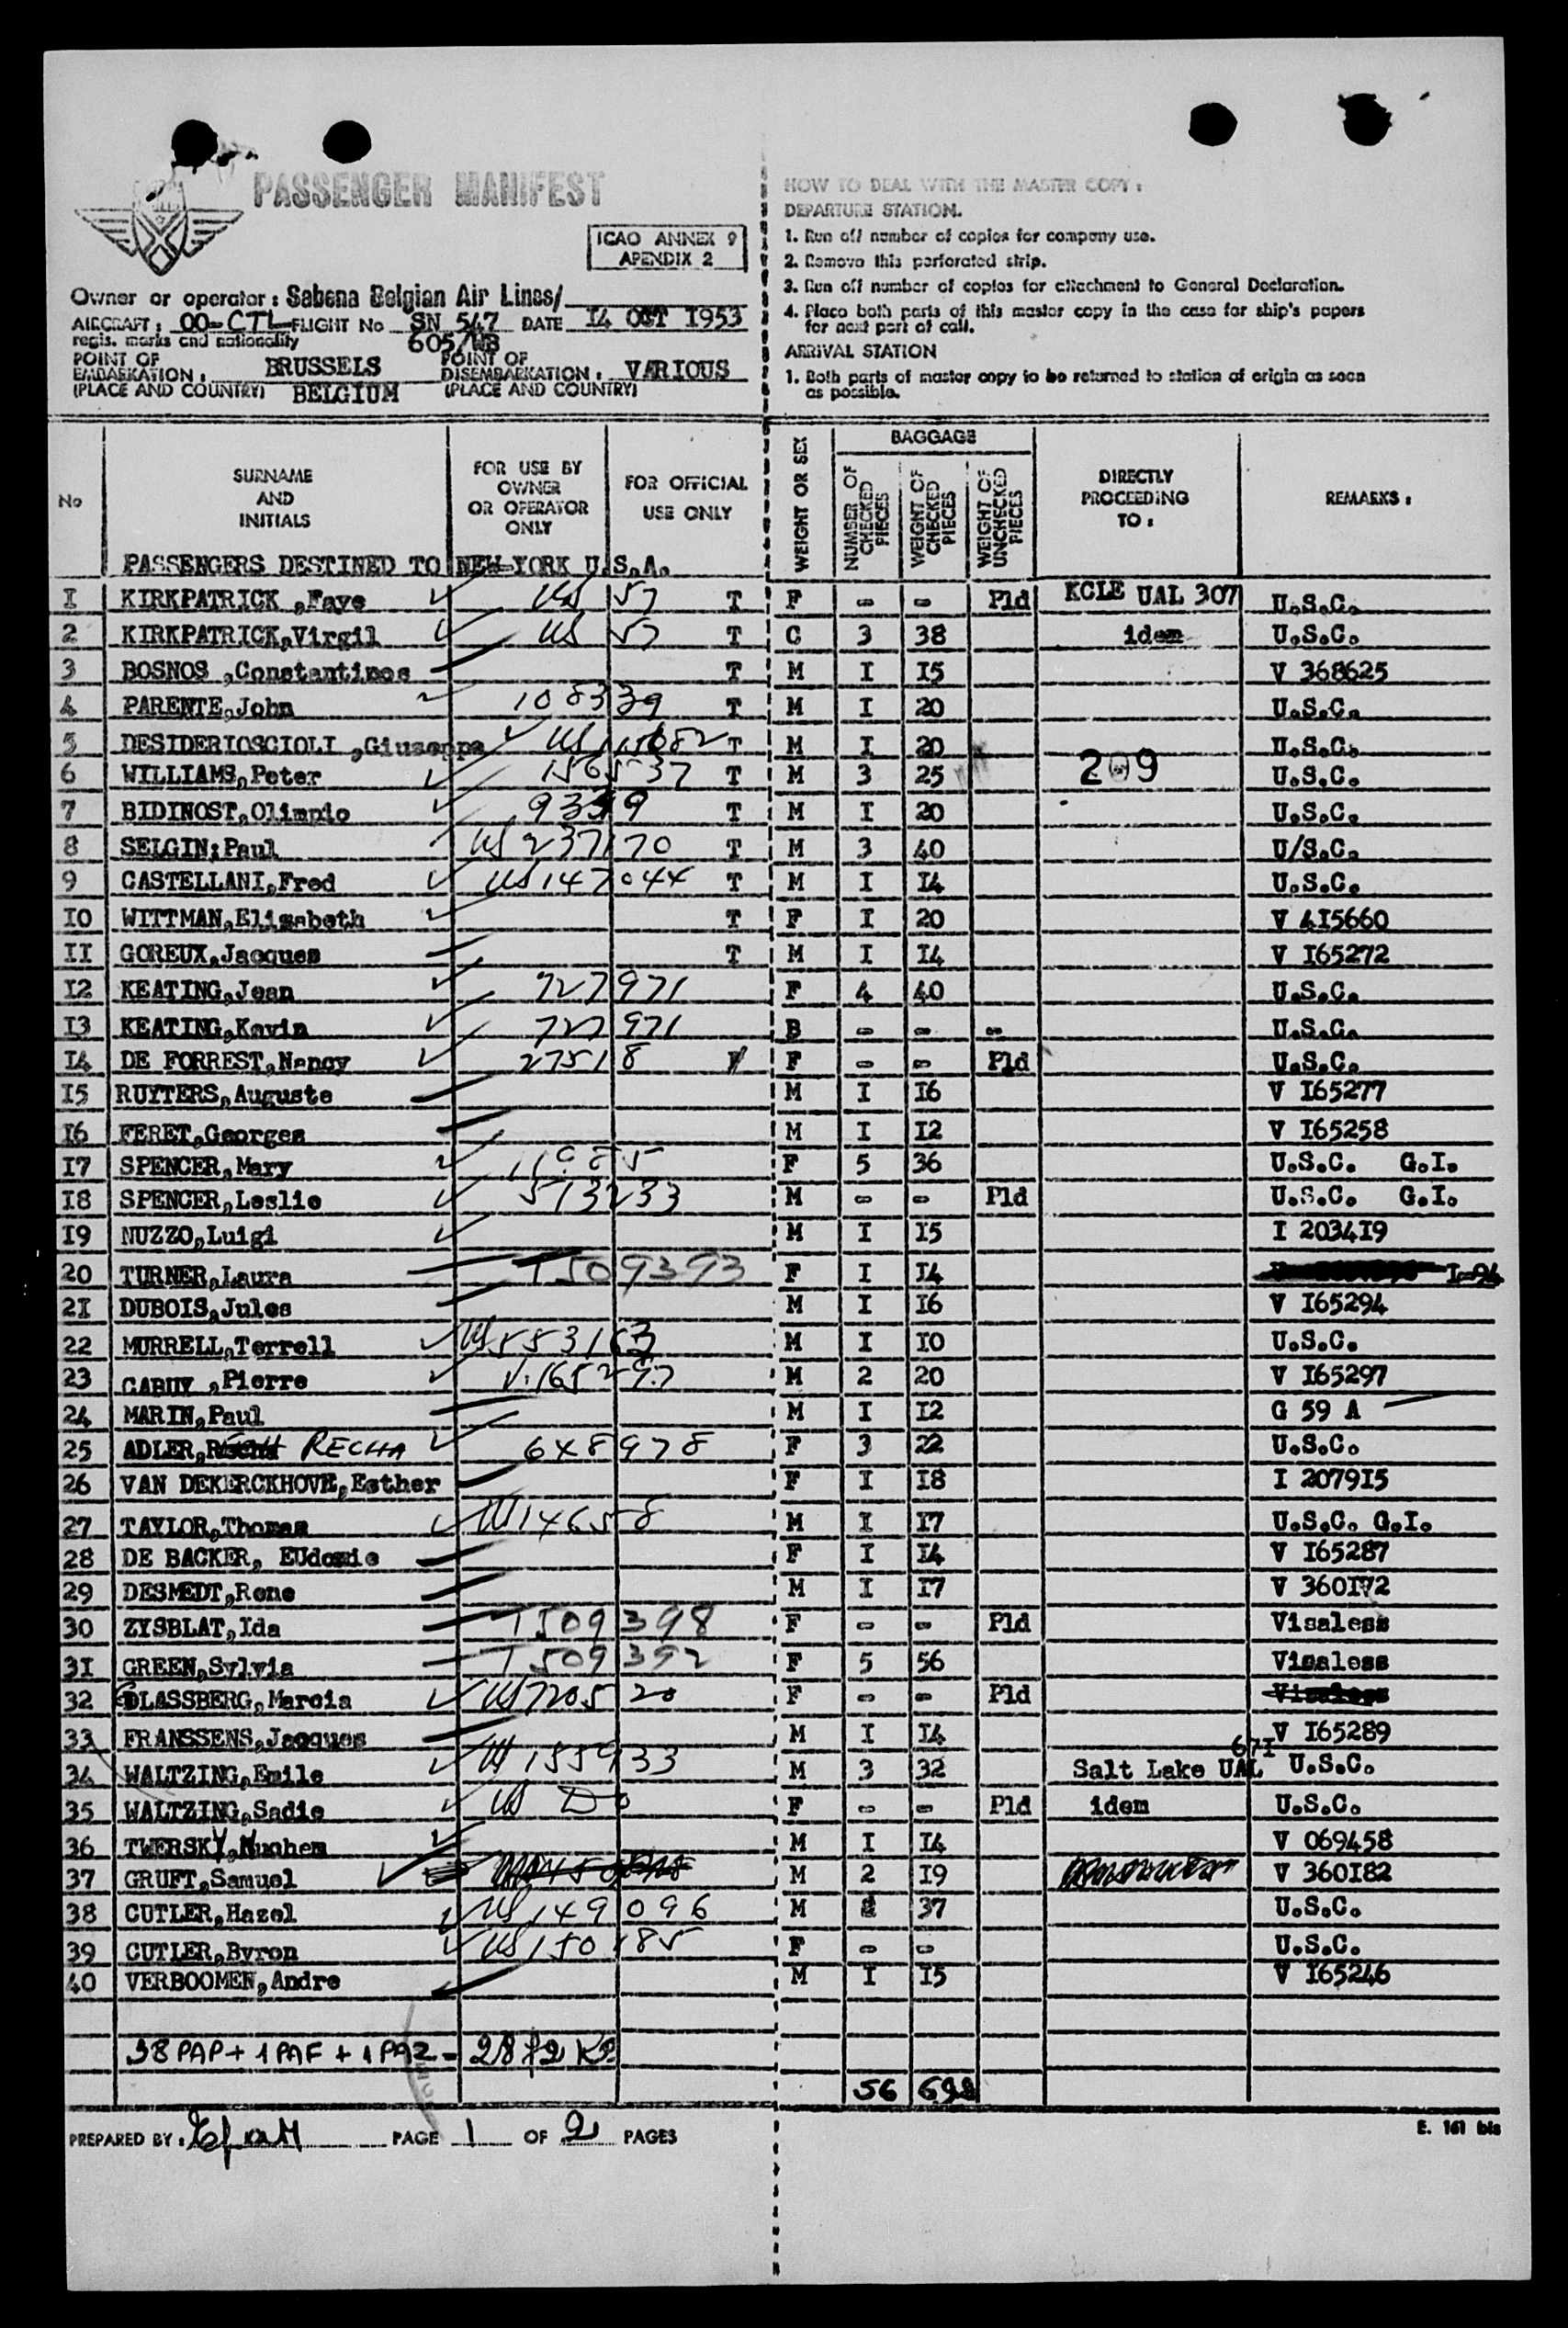 PASSENGER MANIFEST
ICAO ANNEX 9
APENDIX 2
Owner or operator: Sabena Belgian Air Lines/
AIRCRAFT: OO-CTL FLIGHT No SN 547 DATE 14 OCT 1953
regis. marks and nationality 605/WB
POINT OF EMBARKATION: BRUSSELS POINT OF DISEMBARKATION: VARIOUS
(PLACE AND COUNTRY) BELGIUM (PLACE AND COUNTRY)
HOW TO DEAL WITH THE MASTER COPY:
DEPARTURE STATION.
1. Run off number of copies for company use.
2. Remove this perforated strip.
3. Run off number of copies for attachment to General Declaration.
4. Place both parts of this master copy in the case for ship's papers
for next port of call.
ARRIVAL STATION
1. Both parts of master copy to be returned to station of origin as soon
as possible.
No
SURNAME AND INITIALS
FOR USE BY OWNER OR OPERATOR ONLY
FOR OFFICIAL USE ONLY
WEIGHT OR SEX
BAGGAGE
NUMBER OF CHECKED PIECES
WEIGHT OF CHECKED PIECES
WEIGHT OF UNCHECKED PIECES
DIRECTLY PROCEEDING TO:
REMARKS:
PASSENGERS DESTINED TO NEW-YORK U.S.A.
I KIRKPATRICK ,Faye US 57 T F - - Pld KCLE UAL 307 U.S.C.
2 KIRKPATRICK,Virgil US 57 T C 3 38 idem U.S.C.
3 BOSNOS ,Constantinos T M I I5 V 368625
4 PARENTE,John 108339 T M I 20 U.S.C.
5 DESIDERIOSCIOLI ,Giuseppa US 115682 T M I 20 U.S.C.
6 WILLIAMS,Peter 156537 T M 3 25 209 U.S.C.
7 BIDINOST,Olimpio T M I 20 U.S.C.
8 SELGIN:Paul US 237170 T M 3 40 U/S.C.
9 CASTELLANI,Fred US 147044 T M I I4 U.S.C.
IO WITTMAN,Elisabeth T F I 20 V 4I5660
II GOREUX,Jacques T M I I4 V I65272
I2 KEATING,Jean 727971 F 4 40 U.S.C.
I3 KEATING,Kevin 727971 B - - - U.S.C.
I4 DE FORREST,Nancy 27518 F - - Pld U.S.C.
I5 RUYTERS,Auguste M I I6 V I65277
I6 FERET,Georges M I I2 V I65258
I7 SPENCER,Mary F 5 36 U.S.C. G.I.
I8 SPENCER,Leslie 513233 M - - Pld U.S.C. G.I.
I9 NUZZO,Luigi M I I5 I 2034I9
20 TURNER,Laura T509393 F I I4 I-94
2I DUBOIS,Jules M I I6 V I65294
22 MURRELL,Terrell US 553163 M I IO U.S.C.
23 CABUY ,Pierre V.165297 M 2 20 V I65297
24 MARIN,Paul M I I2 G 59 A
25 ADLER, RECHA 648978 F 3 22 U.S.C.
26 VAN DEKERCKHOVE,Esther F I I8 I 2079I5
27 TAYLOR,Thomas US 14658 M I I7 U.S.C. G.I.
28 DE BACKER, EUdoxie F I I4 V I65287
29 DESMEDT,Rene M I I7 V 360I72
30 ZYSBLAT,Ida T509398 F - - Pld Visaless
3I GREEN,Sylvia T509392 F 5 56 Visaless
32 GLASSBERG,Marcia US 720520 F - - Pld Visaless
33 FRANSSENS,Jacques M I I4 V I65289
34 WALTZING,Emile US 155933 M 3 32 Salt Lake UAL 67I U.S.C.
35 WALTZING,Sadie US Do F - - Pld idem U.S.C.
36 TWERSKY, M I I4 V 069458
37 GRUFT,Samuel M 2 I9 V 360I82
38 CUTLER,Hazel US 149096 M 37 U.S.C.
39 CUTLER,Byron US 150185 F - - U.S.C.
40 VERBOOMEN,Andre M I I5 V I65246
38 PAP + 1 PAF + 1 PAZ =
56
PREPARED BY: PAGE 1 OF 2 PAGES
E. 161 bis